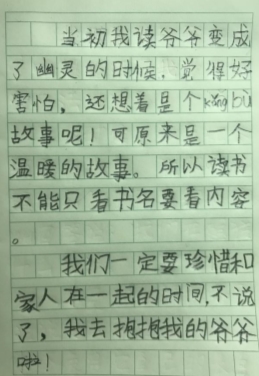 当初我读爷爷变成
了幽灵的时候，觉得好
害怕，还想着是个kǒng bù
故事呢！可原来是一个
温暖的故事。所以读书
不能只看书名要看内容
。
我们一定要珍惜和
家人在一起的时间，不说
了，我去抱抱我的爷爷
啦！